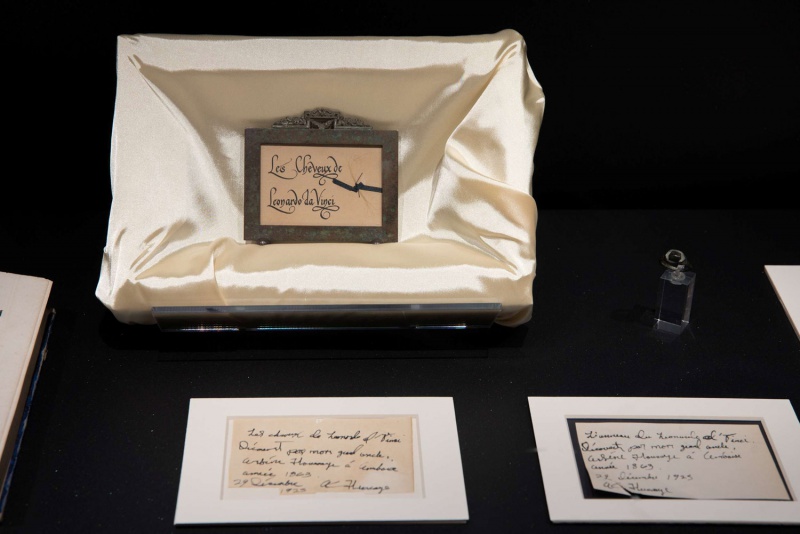 Les Cheveux de
Leonardo da Vinci
Les cheveux de Leonardo d Vinci
Découvert par mon grand oncle,
Arsène Houssaye à Amboise
année 1863
29 Décembre
1925 A Houssaye
L'anneau du Leonardo d Vinci
Découvert par mon grand oncle,
Arsène Houssaye à Amboise
année 1863
29 Décembre 1925
A Houssaye